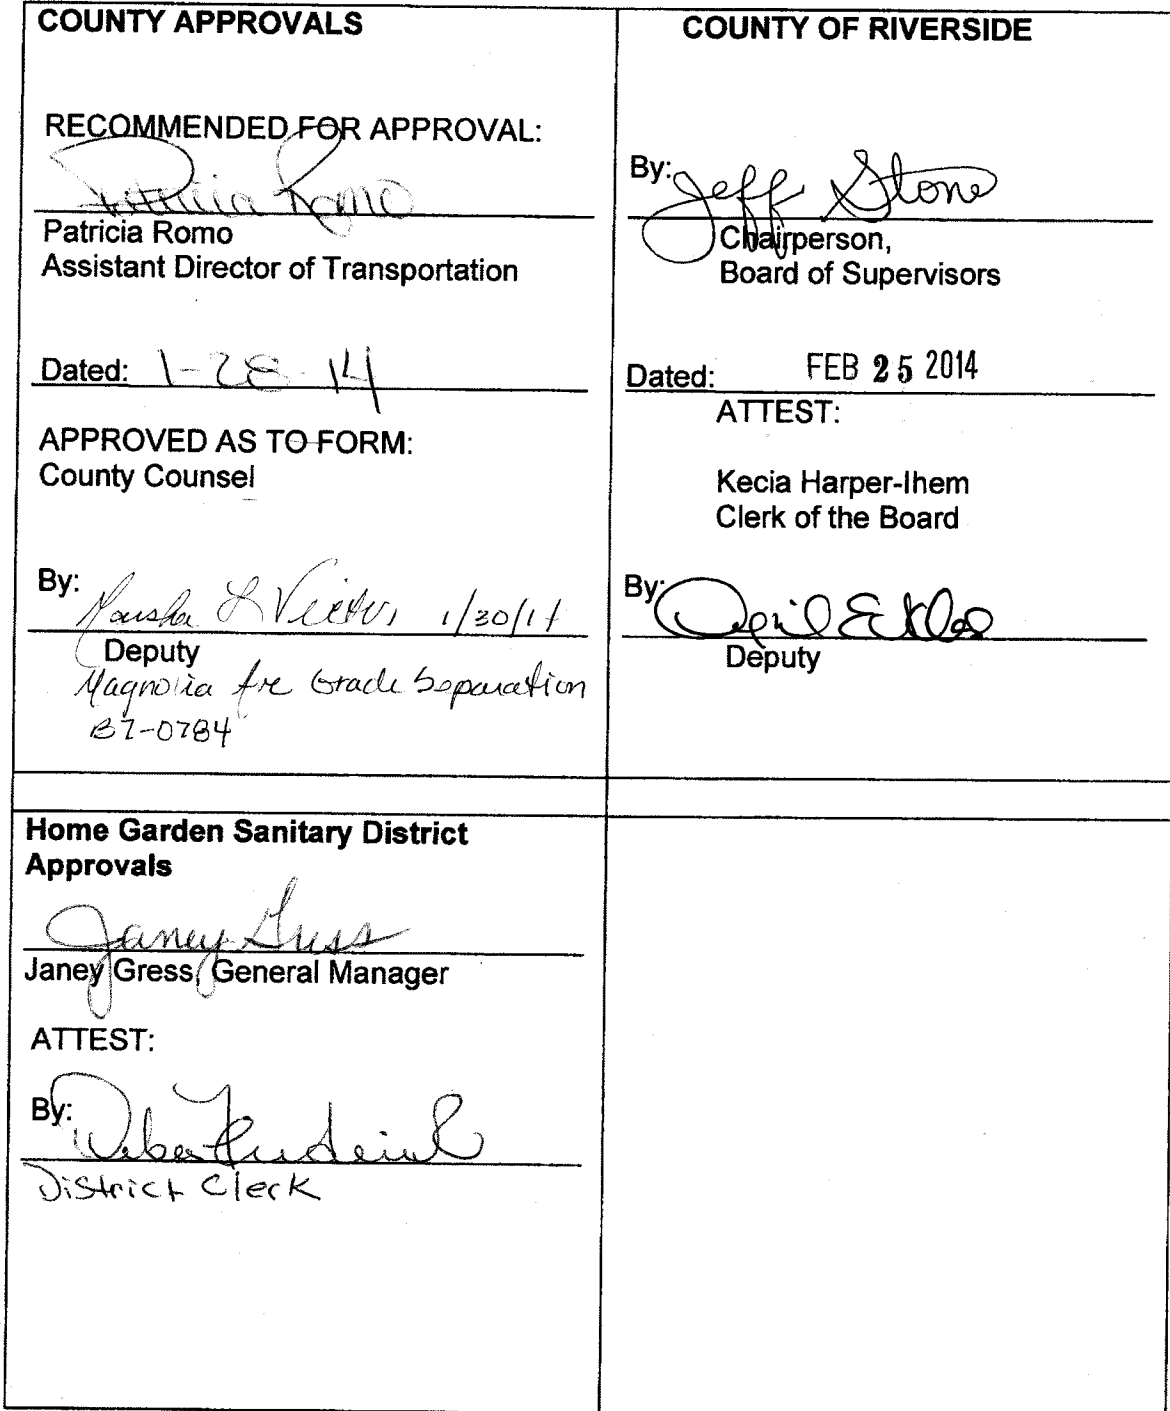 COUNTY APPROVALS
RECOMMENDED FOR APPROVAL:
Patricia Romo
Patricia Romo
Assistant Director of Transportation
Dated: 1-28-14
APPROVED AS TO FORM:
County Counsel
By: Marsha L Victor 1/30/14
Deputy
Magnolia Ave Grade Separation
B7-0784
COUNTY OF RIVERSIDE
By: Jeff Stone
Chairperson,
Board of Supervisors
Dated: FEB 25 2014
ATTEST:
Kecia Harper-Ihem
Clerk of the Board
By:
Deputy
Home Garden Sanitary District
Approvals
Janey Gress
Janey Gress, General Manager
ATTEST:
By:
District Clerk